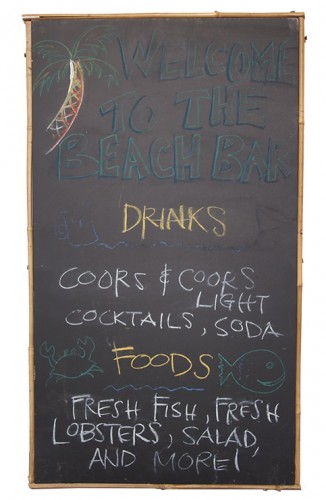 WELCOME
TO THE
BEACH BAR
DRINKS
COORS & COORS
LIGHT
COCKTAILS, SODA
FOODS
FRESH FISH, FRESH
LOBSTERS, SALAD,
AND MORE!